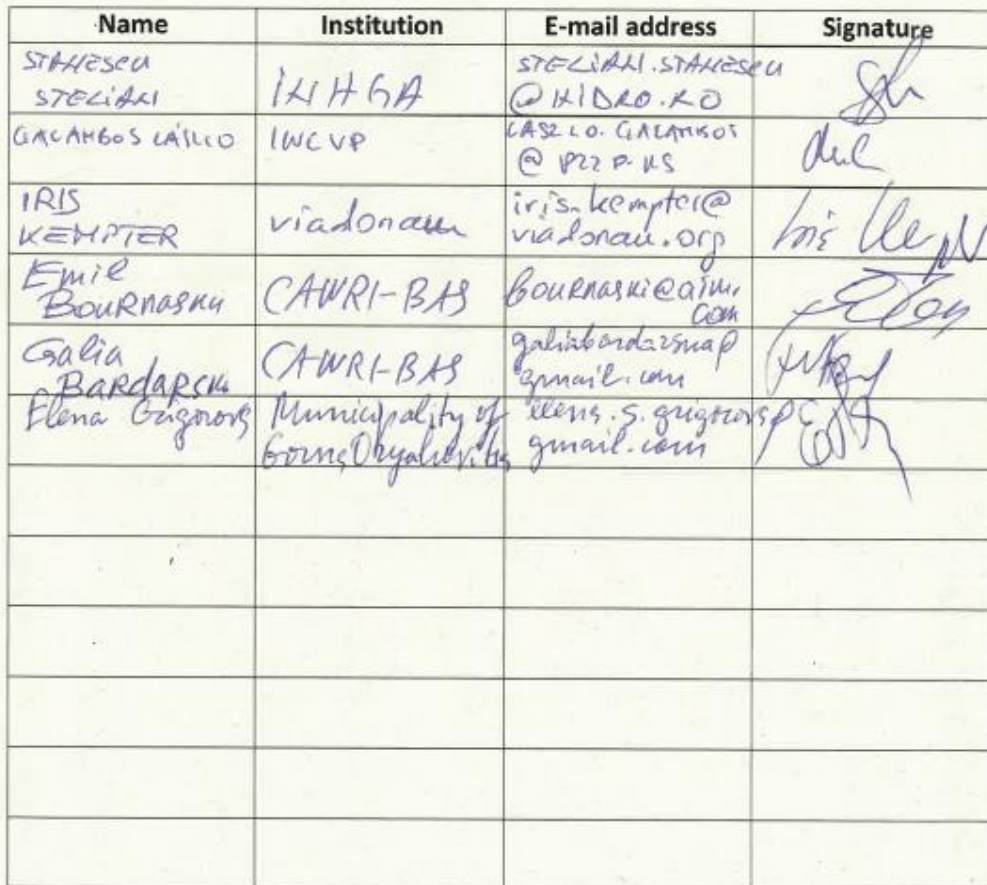 Name Institution E-mail address Signature
STANESCU
STELIAN
INHGA
STELIAN.STANESCU
@HIDRO.RO
GALAMBOS LÁSZLO
LASZLO.GALAMBOS
IRIS
KEMPTER
viadonau
iris.kempter@
viadonau.org
Emil
BOURNASKI
CAWRI-BAS
BOURNASKI@aim.
com
Galia
BARDARSKA
CAWRI-BAS
galiabardarska@
gmail.com
Elena Grigorova
Municipality of
Gorna Oryahovitsa
elena.s.grigorova@
gmail.com